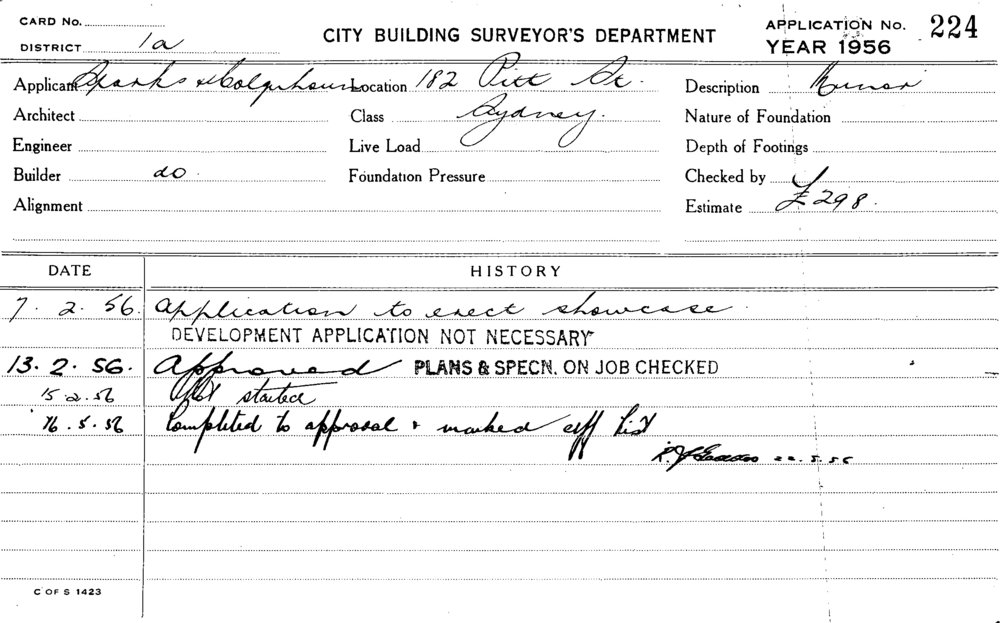 CARD No.
DISTRICT 1a
CITY BUILDING SURVEYOR'S DEPARTMENT
APPLICATION No. 224
YEAR 1956
Applicant Sparks & Colquhoun Location 182 Pitt St. Description Minor
Architect Class Sydney. Nature of Foundation
Engineer Live Load Depth of Footings
Builder do. Foundation Pressure Checked by
Alignment Estimate £298.
DATE HISTORY
7. 2. 56. Application to erect showcase.
DEVELOPMENT APPLICATION NOT NECESSARY
13. 2. 56. Approved PLANS & SPECN. ON JOB CHECKED
15.2.56 Not started
16.5.56 Completed to approval & marked off list
22.5.56
C OF S 1423